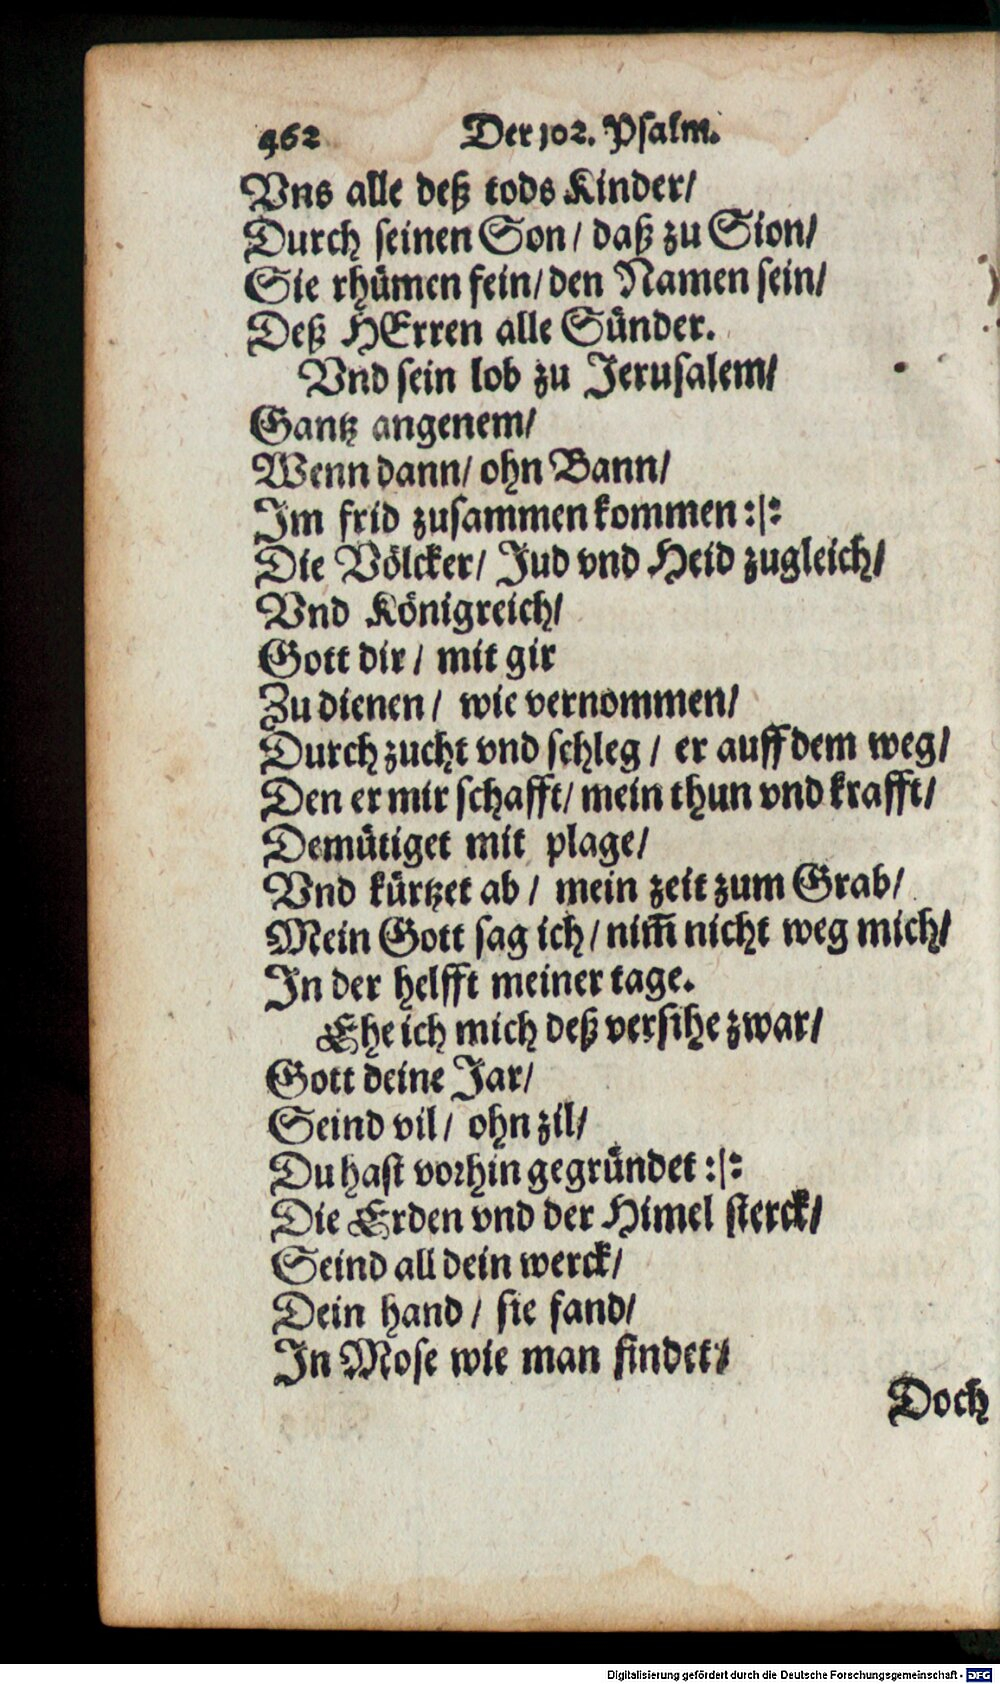 462 Der 102. Psalm.
Vns alle deß tods Kinder/
Durch seinen Son/ daß zu Sion/
Sie rhümen fein/ den Namen sein/
Deß HErren alle Sünder.
Vnd sein lob zu Jerusalem/
Gantz angenem/
Wenn dann/ ohn Bann/
Im frid zusammen kommen :|:
Die Völcker/ Jud vnd Heid zugleich/
Vnd Königreich/
Gott dir/ mit gir
Zu dienen/ wie vernommen/
Durch zucht vnd schleg/ er auff dem weg/
Den er mir schafft/ mein thun vnd krafft/
Demütiget mit plage/
Vnd kürtzet ab/ mein zeit zum Grab/
Mein Gott sag ich/ nim̃ nicht weg mich/
In der helfft meiner tage.
Ehe ich mich deß versihe zwar/
Gott deine Jar/
Seind vil/ ohn zil/
Du hast vorhin gegründet :|:
Die Erden vnd der Himel sterck/
Seind all dein werck/
Dein hand/ sie fand/
In Mose wie man findet/
Doch
Digitalisierung gefördert durch die Deutsche Forschungsgemeinschaft - DFG